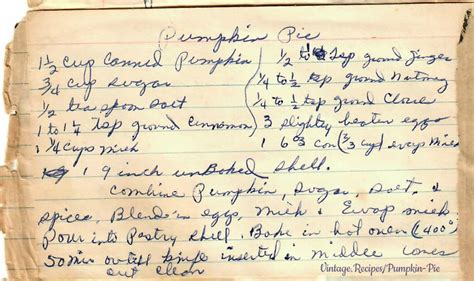 Pumpkin Pie
1 1/2 Cup Canned Pumpkin
3/4 Cup Sugar
1/2 teaspoon Salt
1 to 1 1/4 tsp ground Cinnamon
1 1/4 Cups Milk
1/2 to tsp ground Ginger
1/4 to 1/2 tsp ground Nutmeg
1/4 to 1/2 tsp ground Clove
3 slightly beaten eggs
1 6 oz can (2/3 Cup) evap Milk
1 9 inch unBaked Shell.
Combine Pumpkin, Sugar, Salt, &
Spices, Blend in eggs, milk & Evap milk
Pour into Pastry Shell. Bake in hot oven (400°)
50 min or till knife inserted in middle comes
out clean
Vintage.Recipes/Pumpkin-Pie